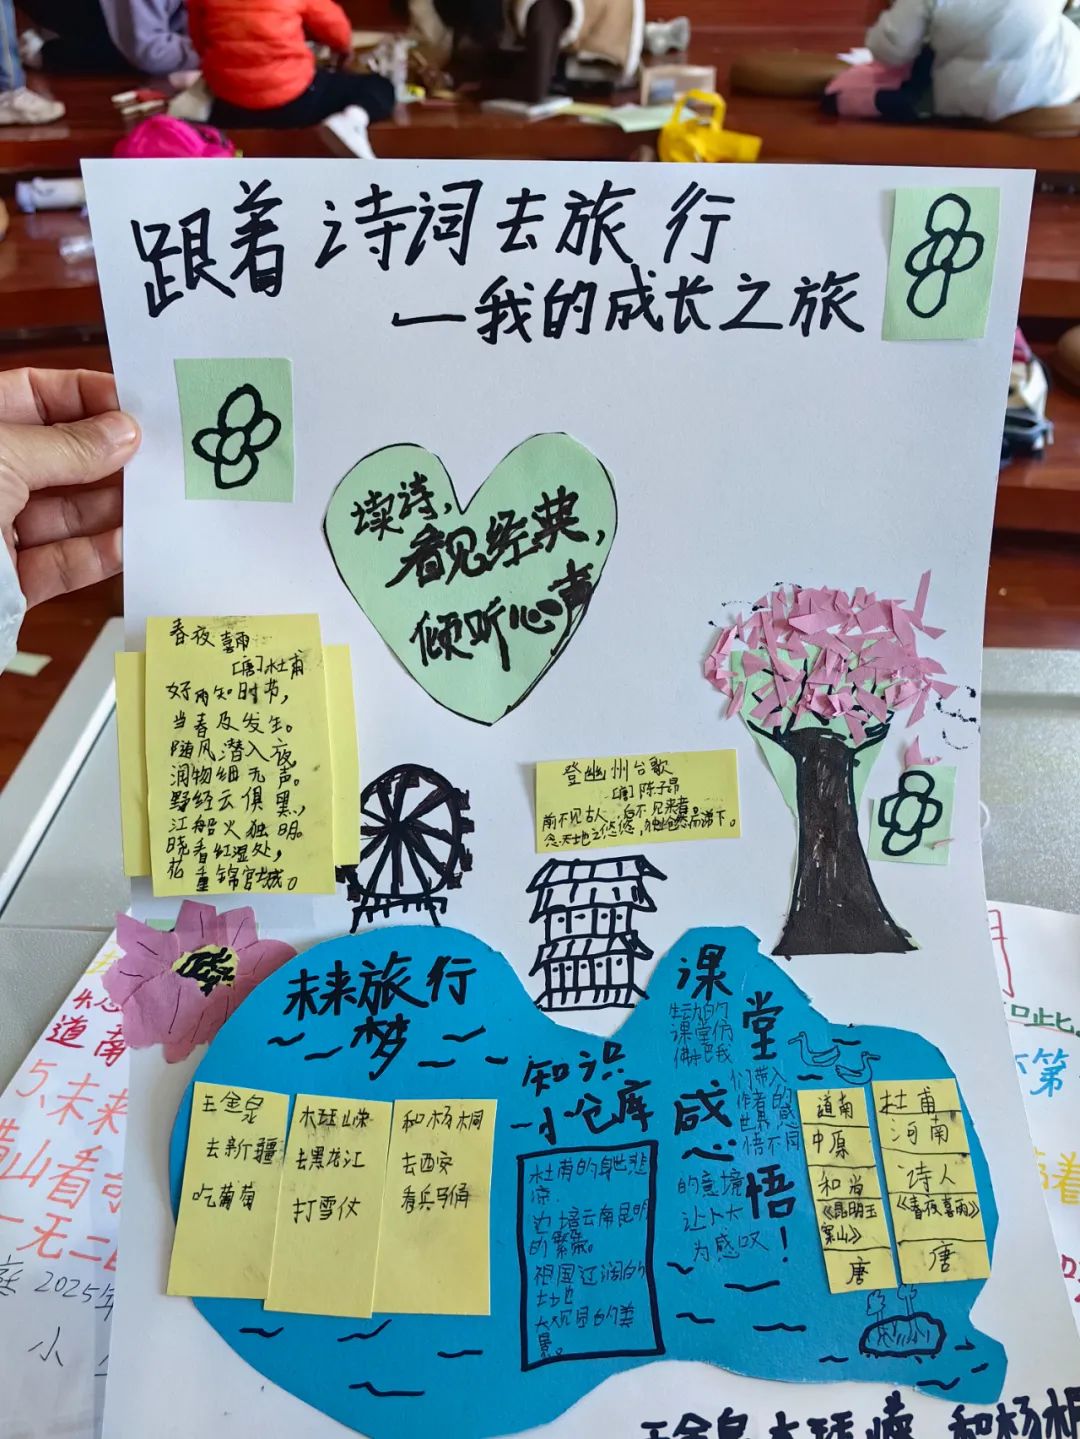 跟着诗词去旅行
—我的成长之旅
读诗,
看见经典,
倾听心声
春夜喜雨
[唐]杜甫
好雨知时节,
当春及发生。
随风潜入夜,
润物细无声。
野经云俱黑,
江船火独明。
晓看红湿处,
花重锦官城。
登幽州台歌
[唐]陈子昂
前不见古人,后不见来者。
念天地之悠悠,独怆然而涕下。
未来旅行
梦
王金泉
去新疆
吃葡萄
木瑟山荣
去黑龙江
打雪仗
和杨桐
去西安
看兵马俑
知识
小仓库
杜甫的身世悲
凉
边塞云南昆明
的繁荣。
祖国辽阔的
土地
大沉星的美
景。
课堂感悟!
生动的
课堂仿
佛把我
们带入
作者的
世界感
悟不同
的意境
让人大
为感叹
道南
中原
和尚
《昆明玉
案山》
唐
杜甫
河南
诗人
《春夜喜雨》
唐
道南
5、未来
山看
无二
2025年
小
如此。
第